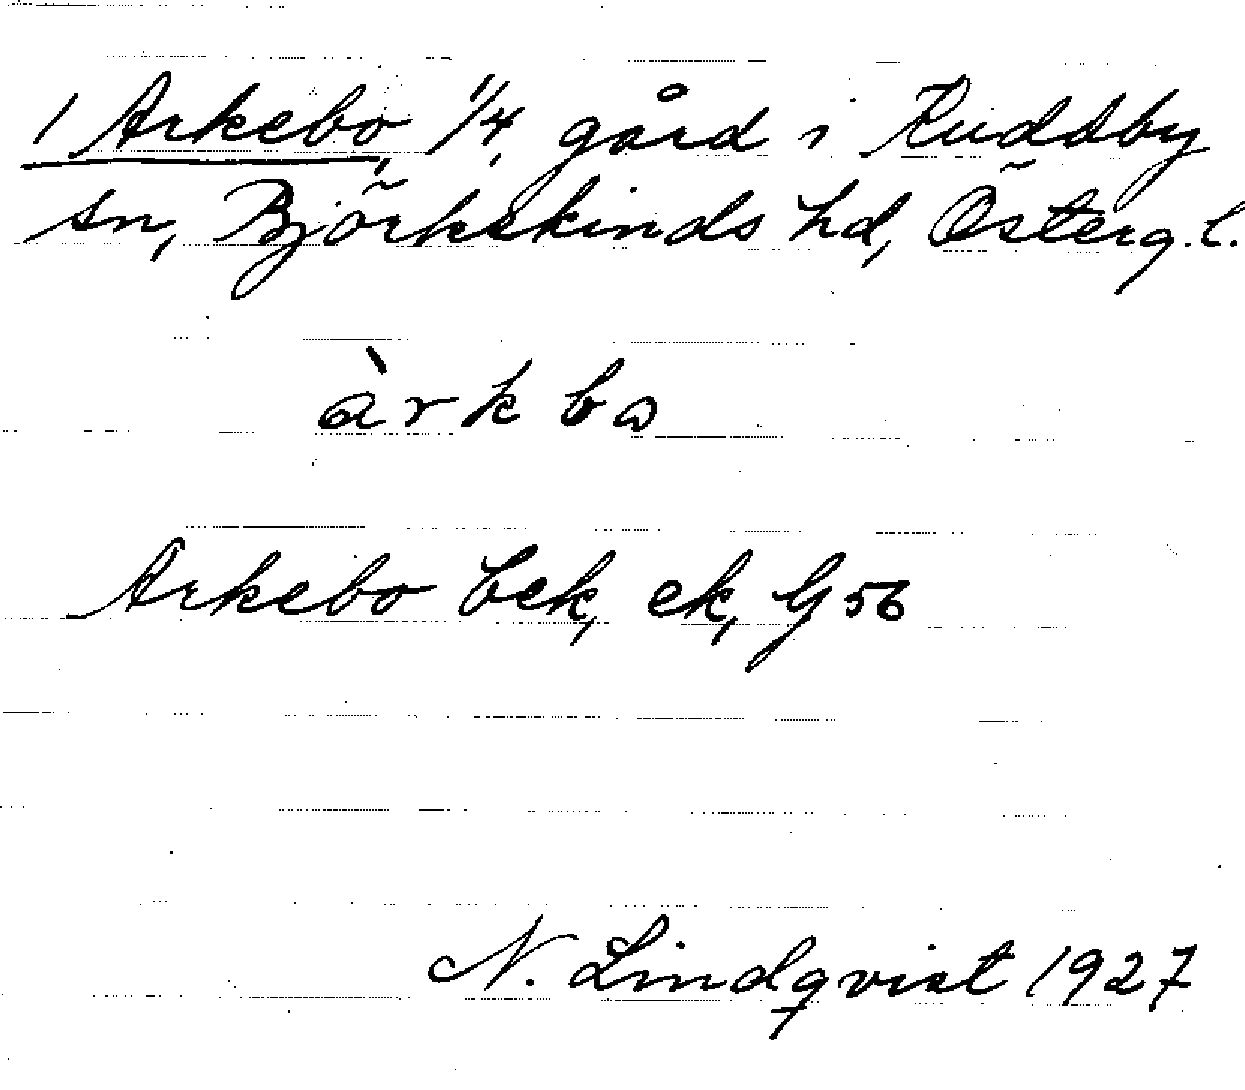 1 Arkebo, 1/4, gård i Ruddby
sn, Björkekinds hd, Österg.l.
àrkbω
Arkebo bek, ek, G 56
N. Lindqvist 1927